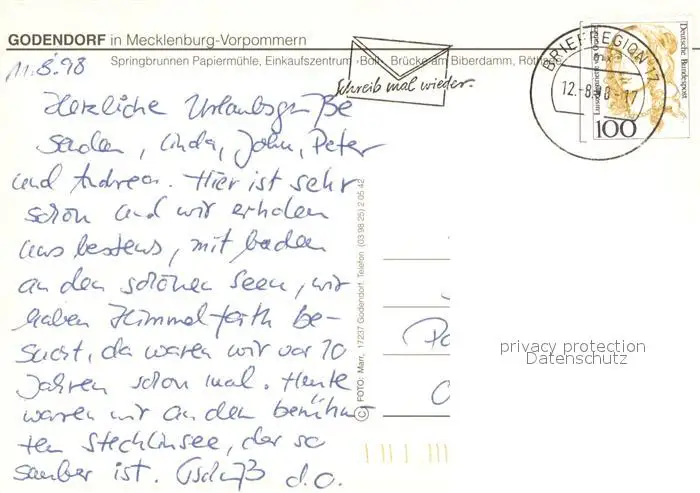 GODENDORF in Mecklenburg-Vorpommern
Springbrunnen Papiermühle, Einkaufszentrum "Bolt", Brücke am Biberdamm,
Schreib mal wieder.
BRIEFREGION 17
12.-8.98-17
Deutsche Bundespost
100
11.8.98
Herzliche Urlaubsgrüße
senden, Linda, John, Peter
und Andrea. Hier ist sehr
schön und wir erholen
uns bestens, mit baden
an den schönen Seen, wir
haben Himmelfahrt be-
sucht, da waren wir vor 10
Jahren schon mal. Heute
waren wir an den berühm-
ten Stechlinsee, der so
sauber ist. Tschüß d.O.
© FOTO: Marr, 17237 Godendorf, Telefon (03 98 25) 2 05 42
privacy protection
Datenschutz